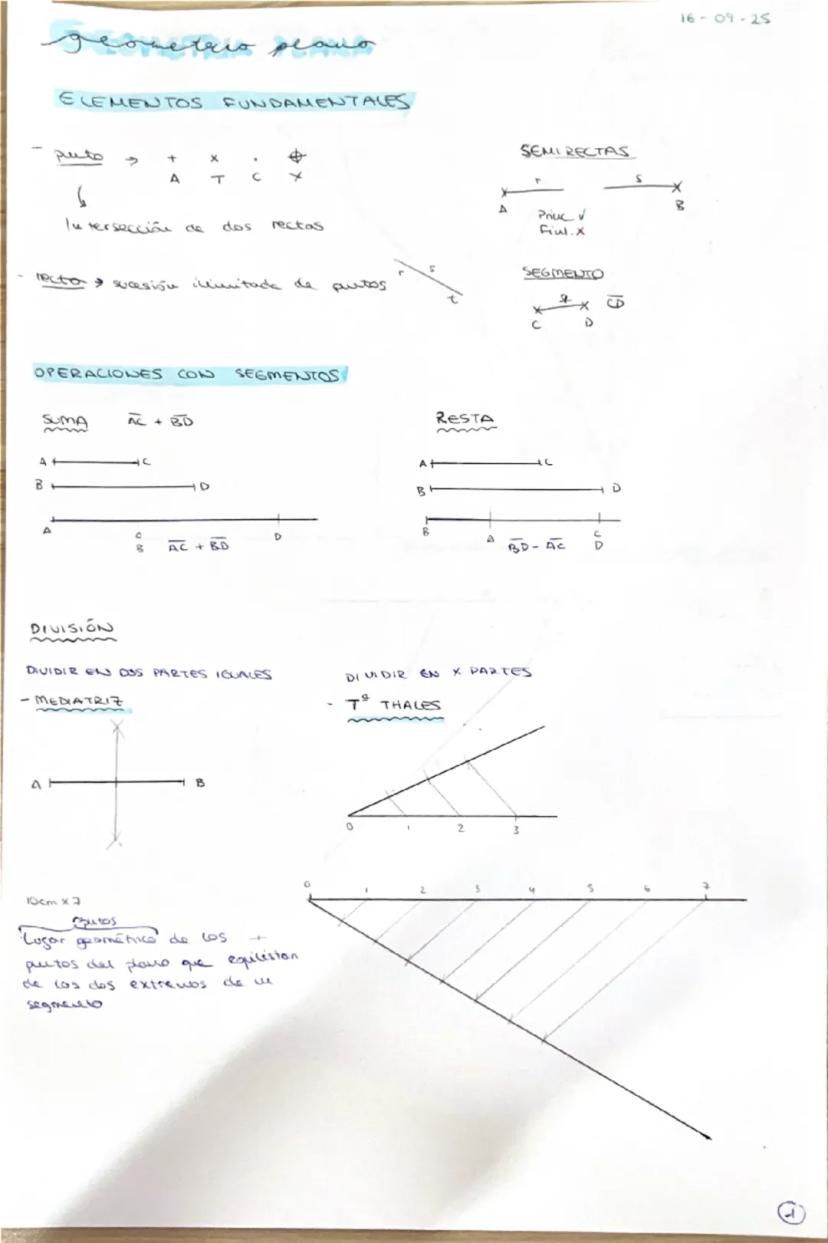 16-09-25
geometria plana
ELEMENTOS FUNDAMENTALES
- punto → + x . ⌖
A T C X
Intersección de dos rectas
SEMIRECTAS
r s
A B
Princ. ✓
Final. x
- recta → sucesión ilimitada de puntos
r s
t
SEGMENTO
C D
CD
OPERACIONES CON SEGMENTOS
SUMA AC + BD
A C
B D
A C D
B AC + BD
RESTA
A C
B D
B A C
BD - AC D
DIVISIÓN
DIVIDIR EN DOS PARTES IGUALES
- MEDIATRIZ
A B
DIVIDIR EN X PARTES
- Tª THALES
0 1 2 3
0 1 2 3 4 5 6 7
10cm x 7
Puntos
Lugar geométrico de los +
puntos del plano que equidistan
de los dos extremos de un
segmento
1